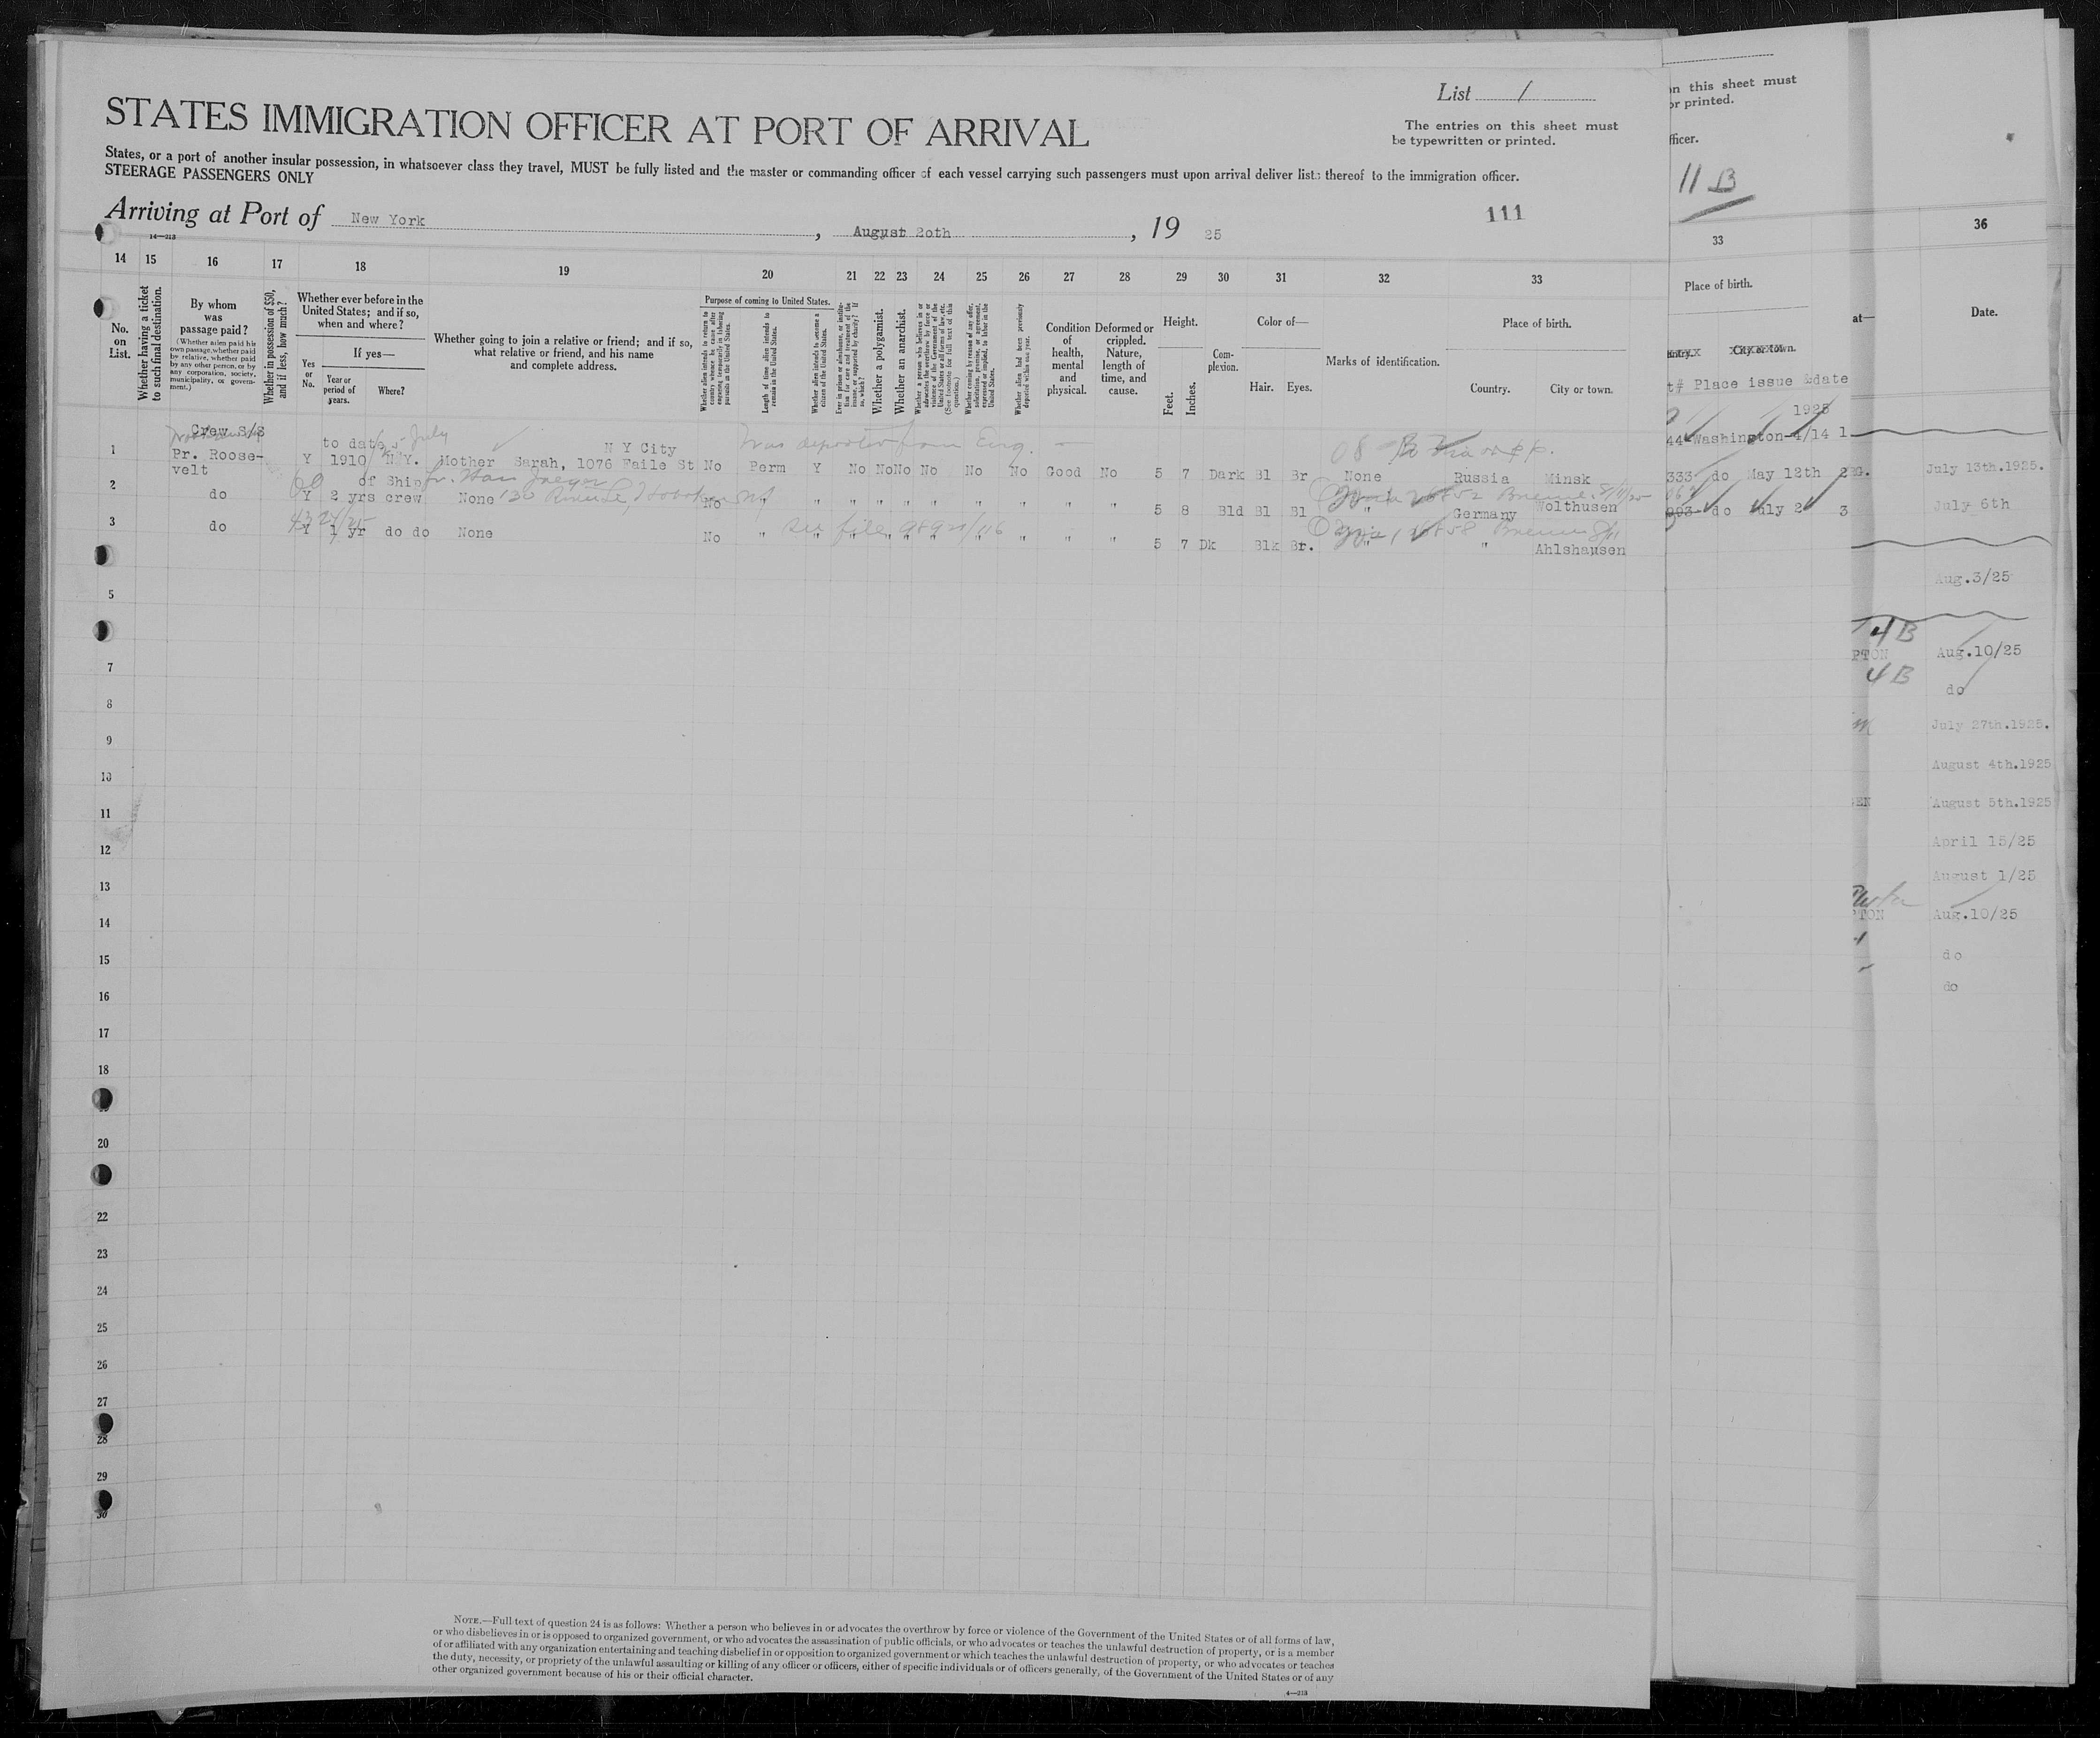 List 1
STATES IMMIGRATION OFFICER AT PORT OF ARRIVAL
The entries on this sheet must
be typewritten or printed.
States, or a port of another insular possession, in whatsoever class they travel, MUST be fully listed and the master or commanding officer of each vessel carrying such passengers must upon arrival deliver lists thereof to the immigration officer.
STEERAGE PASSENGERS ONLY
Arriving at Port of New York, August 20th, 19 25
111
14—213
14 15 16 17 18 19 20 21 22 23 24 25 26 27 28 29 30 31 32 33
No. on List.
Whether having a ticket to such final destination.
By whom was passage paid?
(Whether alien paid his own passage, whether paid by relative, whether paid by any other person, or by any corporation, society, municipality, or government.)
Whether in possession of $50, and if less, how much?
Whether ever before in the United States; and if so, when and where?
Yes or No.
If yes—
Year or period of years.
Where?
Whether going to join a relative or friend; and if so, what relative or friend, and his name and complete address.
Purpose of coming to United States.
Whether alien intends to return to country whence he came after engaging temporarily in laboring pursuits in the United States.
Length of time alien intends to remain in the United States.
Whether alien intends to become a citizen of the United States.
Ever in prison or almshouse, or institution for care and treatment of the insane, or supported by charity? If so, which?
Whether a polygamist.
Whether an anarchist.
Whether a person who believes in or advocates the overthrow by force or violence of the Government of the United States or all forms of law, etc. (See footnote for full text of this question.)
Whether coming by reason of any offer, solicitation, promise, or agreement, expressed or implied, to labor in the United States.
Whether alien had been previously deported within one year.
Condition of health, mental and physical.
Deformed or crippled. Nature, length of time, and cause.
Height.
Feet.
Inches.
Complexion.
Color of—
Hair. Eyes.
Marks of identification.
Place of birth.
Country. City or town.
Crew s/s
to date July
N Y City
Was deported from Eng.
1 Pr. Roose-
velt Y 1910 N Y. Mother Sarah, 1076 Faile St No Perm Y No No No No No No Good No 5 7 Dark Bl Br None Russia Minsk
of Ship fr. Hans Jaeger
2 do Y 2 yrs crew None 130 River St, Hoboken NJ No " " " " " " " " " " 5 8 Bld Bl Bl " Germany Wolthusen
3 do Y 1 yr do do None No " " " " " " " " " " 5 7 Dk Blk Br. " " Ahlshausen
see file
5
7
8
9
10
11
12
13
14
15
16
17
18
20
22
23
24
25
26
27
28
29
30
NOTE.—Full text of question 24 is as follows: Whether a person who believes in or advocates the overthrow by force or violence of the Government of the United States or of all forms of law,
or who disbelieves in or is opposed to organized government, or who advocates the assassination of public officials, or who advocates or teaches the unlawful destruction of property, or is a member
of or affiliated with any organization entertaining and teaching disbelief in or opposition to organized government or which teaches the unlawful destruction of property, or who advocates or teaches
the duty, necessity, or propriety of the unlawful assaulting or killing of any officer or officers, either of specific individuals or of officers generally, of the Government of the United States or of any
other organized government because of his or their official character.
4—213
n this sheet must
or printed.
fficer.
11 B
33
Place of birth.
City or town.
t# Place issue &date
1925
44 Washington-4/14 1
333 do May 12th 2
093 do July 2 3
36
at—
Date.
RG. July 13th.1925.
July 6th
Aug.3/25
4 B
PTON Aug.10/25
4 B
do
July 27th.1925.
August 4th.1925
EN August 5th.1925
April 15/25
August 1/25
PTON Aug.10/25
do
do